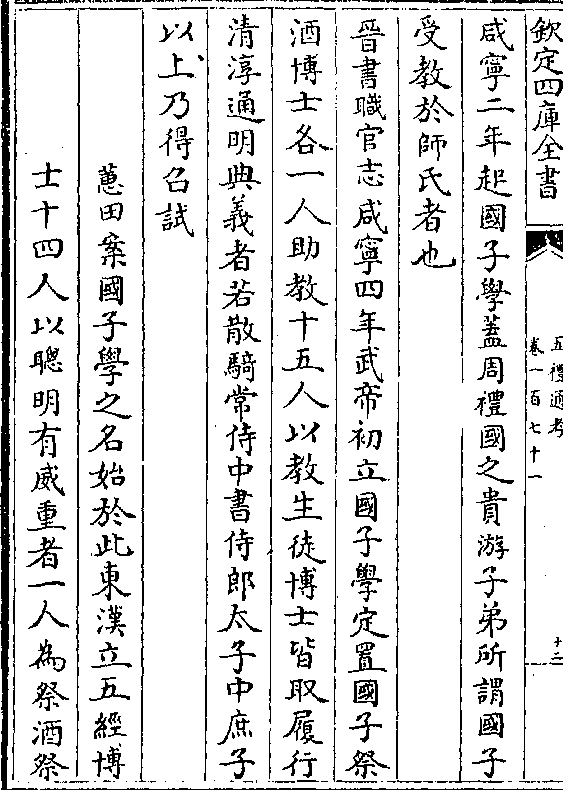 欽定四庫全書
五禮通考
卷一百七十一
十二
咸寧二年起國子學蓋周禮國之貴游子弟所謂國子
受教於師氏者也
晉書職官志咸寧四年武帝初立國子學定置國子祭
酒博士各一人助教十五人以教生徒博士皆取履行
清淳通明典義者若散騎常侍中書侍郎太子中庶子
以上乃得召試
蕙田案國子學之名始於此東漢立五經博
士十四人以聰明有威重者一人為祭酒祭